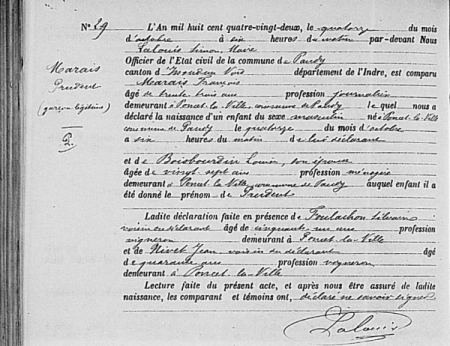 N° 29 L'An mil huit cent quatre-vingt-deux, le quatorze du mois
d'octobre à six heures du matin par-devant Nous
Lalouis Simon, Maire
Officier de l'Etat civil de la commune de Paudy
canton d'Issoudun département de l'Indre, est comparu
Marais
Prudent
(garçon légitime)
Marais François
âgé de trente trois ans profession journalier
demeurant à Poncet-la-Ville, commune de Paudy le quel nous a
déclaré la naissance d'un enfant du sexe masculin né à Poncet-la-Ville
commune de Paudy le quatorze du mois d'octobre
à six heures du matin de lui déclarant
et de Boisbourdin Louise, son épouse
âgée de vingt sept ans profession ménagère
demeurant à Poncet-la-Ville commune de Paudy auquel enfant il a
été donné le prénom de Prudent
Ladite déclaration faite en présence de
voisin du déclarant âgé de cinquante un ans profession
vigneron demeurant à Poncet-la-Ville
et de Nivet Jean voisin du déclarant âgé
de quarante ans profession vigneron
demeurant à Poncet-la-Ville
Lecture faite du présent acte, et après nous être assuré de ladite
naissance, les comparant et témoins ont, déclaré ne savoir signer
Lalouis